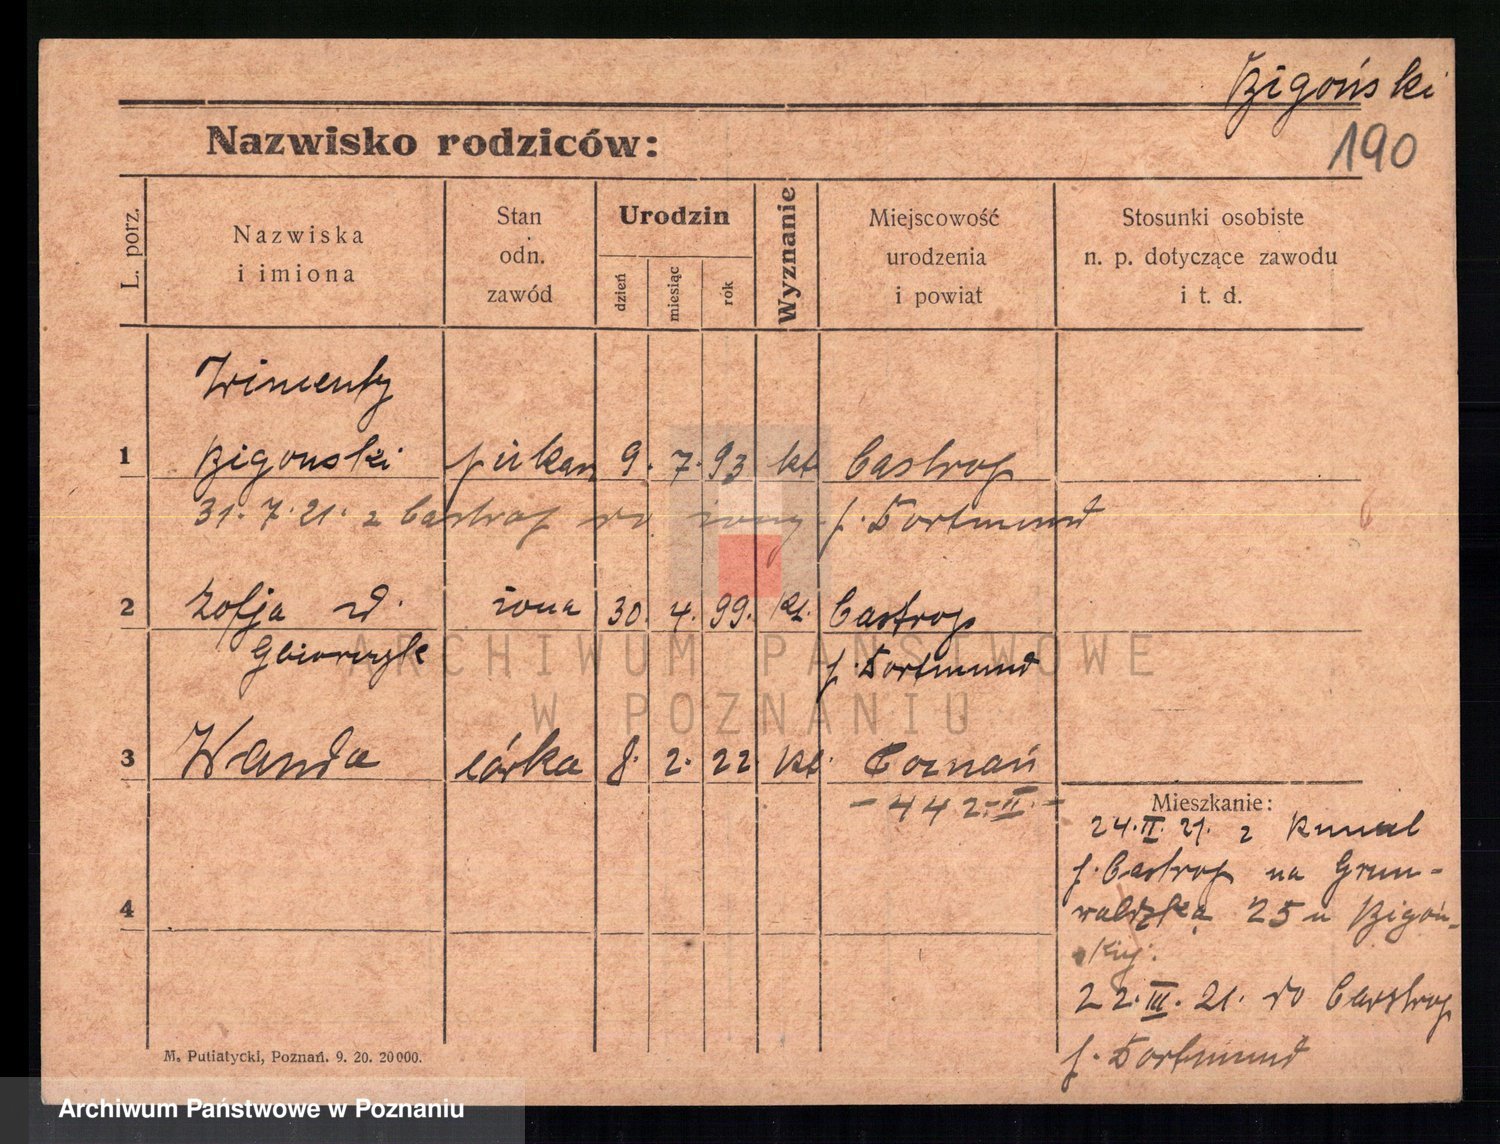 Bigoński
190
Nazwisko rodziców:
L. porz.
Nazwiska
i imiona
Stan
odn.
zawód
Urodzin
dzień
miesiąc
rok
Wyznanie
Miejscowość
urodzenia
i powiat
Stosunki osobiste
n. p. dotyczące zawodu
i t. d.
Wincenty
1 Bigonski 9. 7. 93 kt. Castrop
31. 7. 21. z Castrop do żony p. Dortmund
2 Zofja żona 30. 4. 99. kt. Castrop
p. Dortmund
3 Wanda córka 8. 2. 22. kt. Poznań
- 442. II. -
4
Mieszkanie:
24. II. 21. z
p. Castrop na Grun-
waldzką 25 u Bigoń-
kiej.
22. III. 21. do Castrop
p. Dortmund
M. Putiatycki, Poznań. 9. 20. 20000.
ARCHIWUM PAŃSTWOWE
W POZNANIU
Archiwum Państwowe w Poznaniu